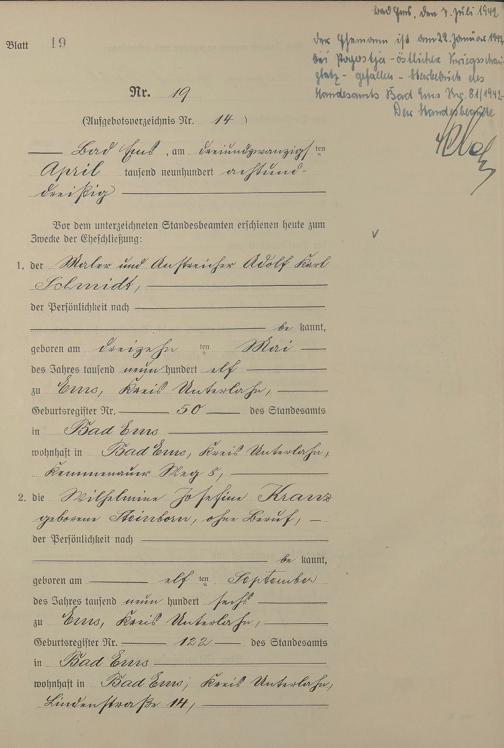 Bad Ems, den 7. Juli 1942
Der Ehemann ist am 22. Januar 1942
bei Pogostja - östlicher Kriegsschau
platz - gefallen - Sterbebuch des
Standesamts Bad Ems Nr. 81/1942 -
Der Standesbeamte
Blatt 19
Nr. 19
(Aufgebotsverzeichnis Nr. 14)
Bad Ems, am dreiundzwanzigsten
April tausend neunhundert achtund-
dreißig
Vor dem unterzeichneten Standesbeamten erschienen heute zum
Zwecke der Eheschließung:
1. der Maler und Anstreicher Adolf Karl
Schmidt,
der Persönlichkeit nach
be kannt,
geboren am dreizehn ten Mai
des Jahres tausend neun hundert elf
zu Ems, Kreis Unterlahn,
Geburtsregister Nr. 50 des Standesamts
in Bad Ems
wohnhaft in Bad Ems, Kreis Unterlahn,
Kemmenauer Weg 8,
2. die Wilhelmine Josefine Kranz
geborene Steinborn, ohne Beruf,
der Persönlichkeit nach
be kannt,
geboren am elf ten September
des Jahres tausend neun hundert sechs
zu Ems, Kreis Unterlahn,
Geburtsregister Nr. 122 des Standesamts
in Bad Ems
wohnhaft in Bad Ems, Kreis Unterlahn,
Lindenstraße 14,